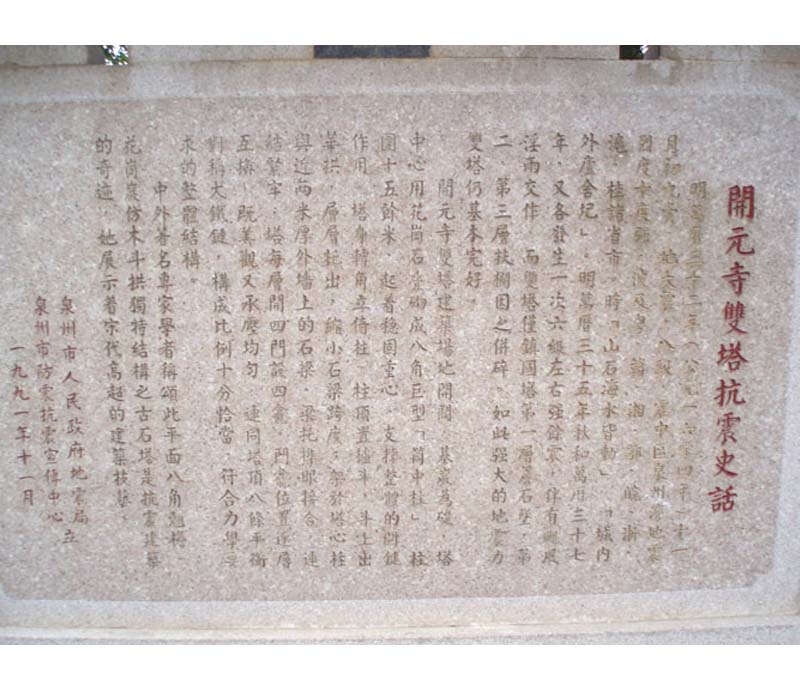 開元寺雙塔抗震史話
明萬曆三十二年（公元一六零四年）十一
月初九夜 地大震 八級 震中區泉州 地震
烈度十度 波及 贛 湘 鄂 皖 浙
滬 桂諸省市。時「山石海水皆動」「城內
外廬舍圮」。明萬曆三十五年秋和萬曆三十七
年，又各發生一次六級左右强餘震，伴有颶風
淫雨交作 而雙塔僅鎮國塔第一層蓋石墜，第
二、第三層扶欄因之併碎。如此强大的地震力
雙塔仍基本完好。
開元寺雙塔建築場地開闊，基巖為礎，塔
中心用花崗石壘砌成八角巨型「筒中柱」 柱
圍十五餘米，起着穩固重心，支撐整體的關鍵
作用。塔身轉角立倚柱，柱頂置櫨斗，斗上出
華拱，層層挑出，縮小石梁跨度，架於塔心柱
與近两米厚外墙上的石梁， 梁托榫眼接合，連
結緊牢，塔每層開四門設四龕，門龕位置逐層
互換，既美觀又承壓均勻 連同塔頂八條平衡
對稱大鐵鏈，構成比例十分恰當，符合力學要
求的整體結構。
中外著名專家學者稱頌此平面八角翹檐
花崗巖仿木斗拱獨特結構之古石塔是抗震建築
的奇迹，她展示着宋代高超的建築技藝。
泉州市人民政府地震局立
泉州市防震抗震宣傳中心
一九九一年十一月